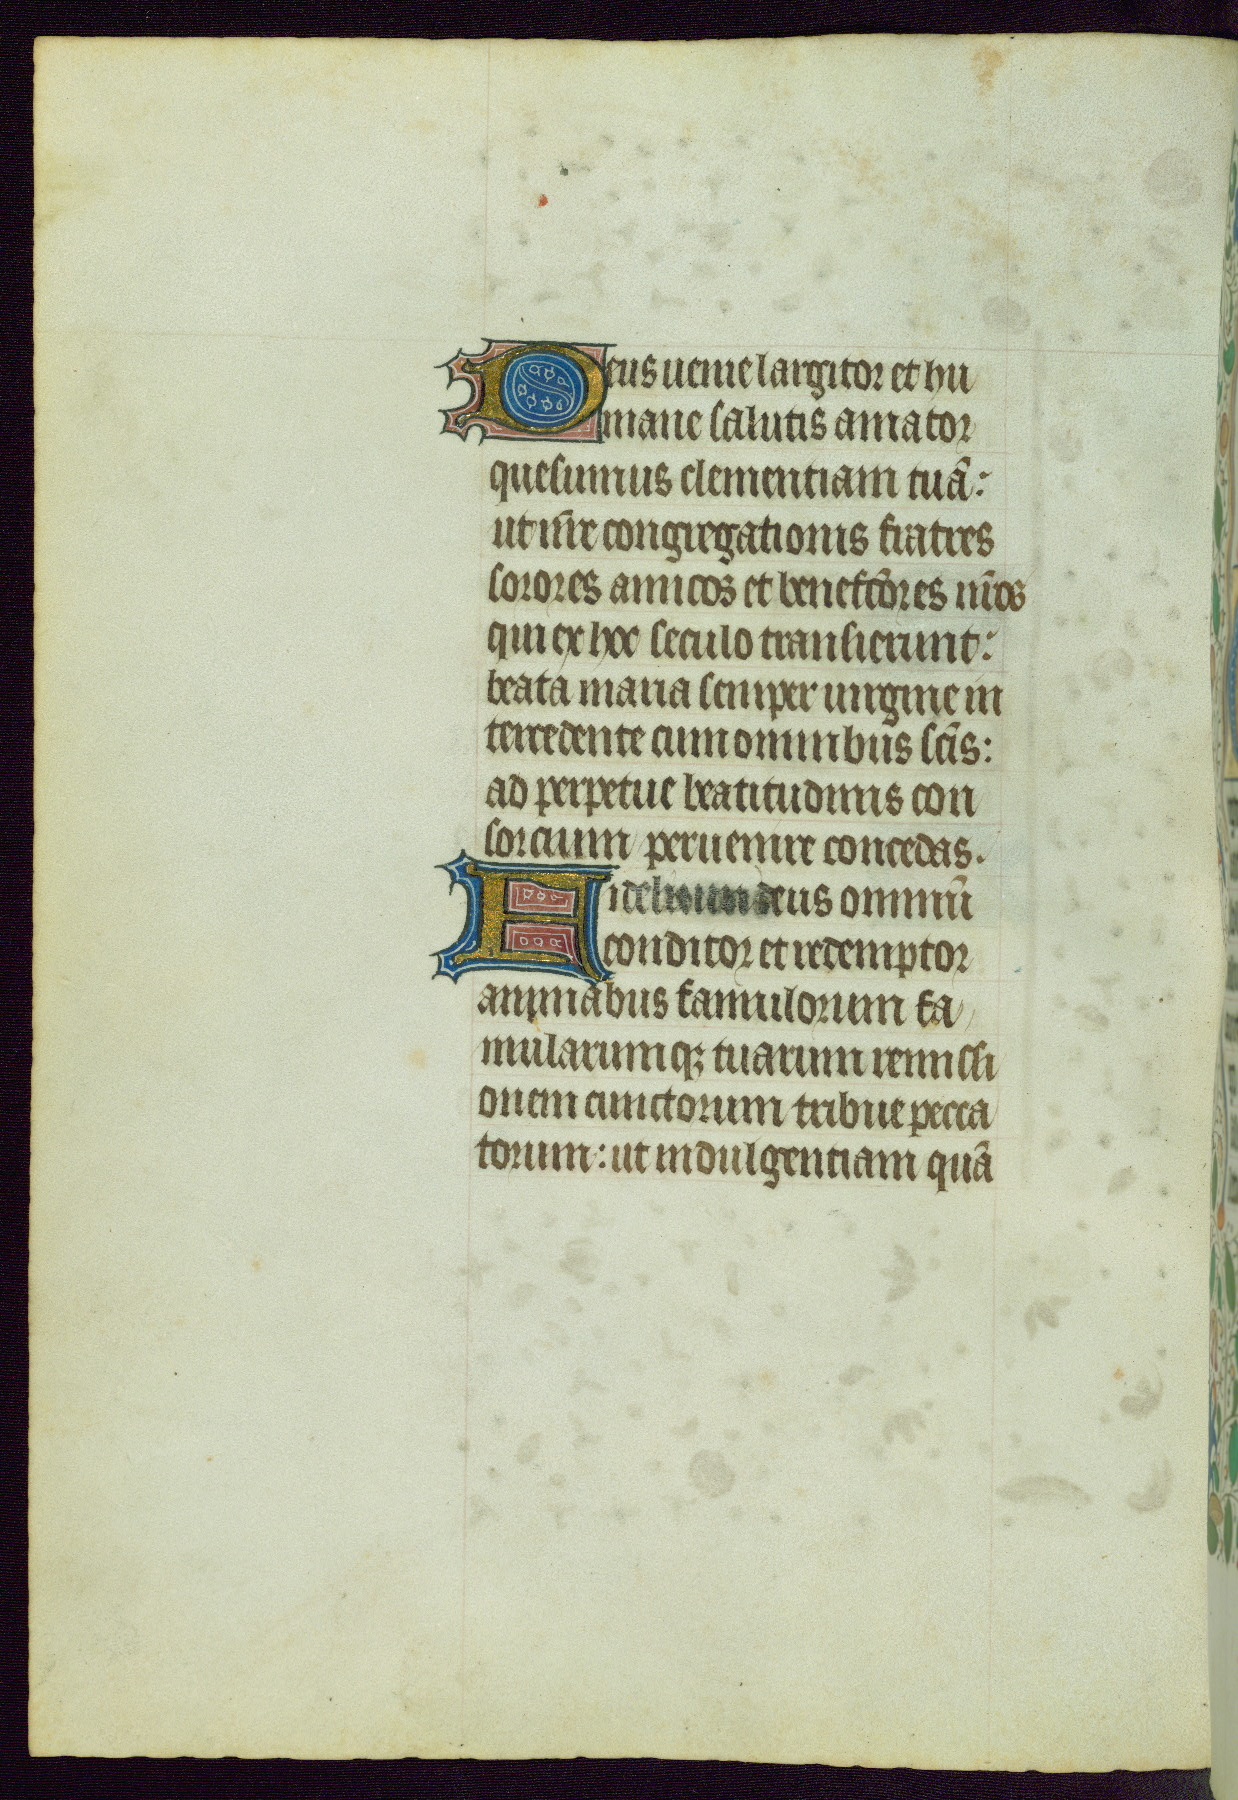 Deus uenie largitor et hu
mane salutis amator
quesumus clementiam tuā:
ut nr̄e congregationis fratres
sorores amicos et benefc̄ores nr̄os
qui ex hoc seculo transierunt:
beata maria semper uirgine in
tercedente cum omnibus sc̄is:
ad perpetue beatitudinis con
sorcium peruenire concedas.
Fidelium deus omniū
conditor et redemptor
animabus famulorum fa
mularumqꝫ tuarum remissi
onem cunctorum tribue pecca
torum: ut indulgentiam quā